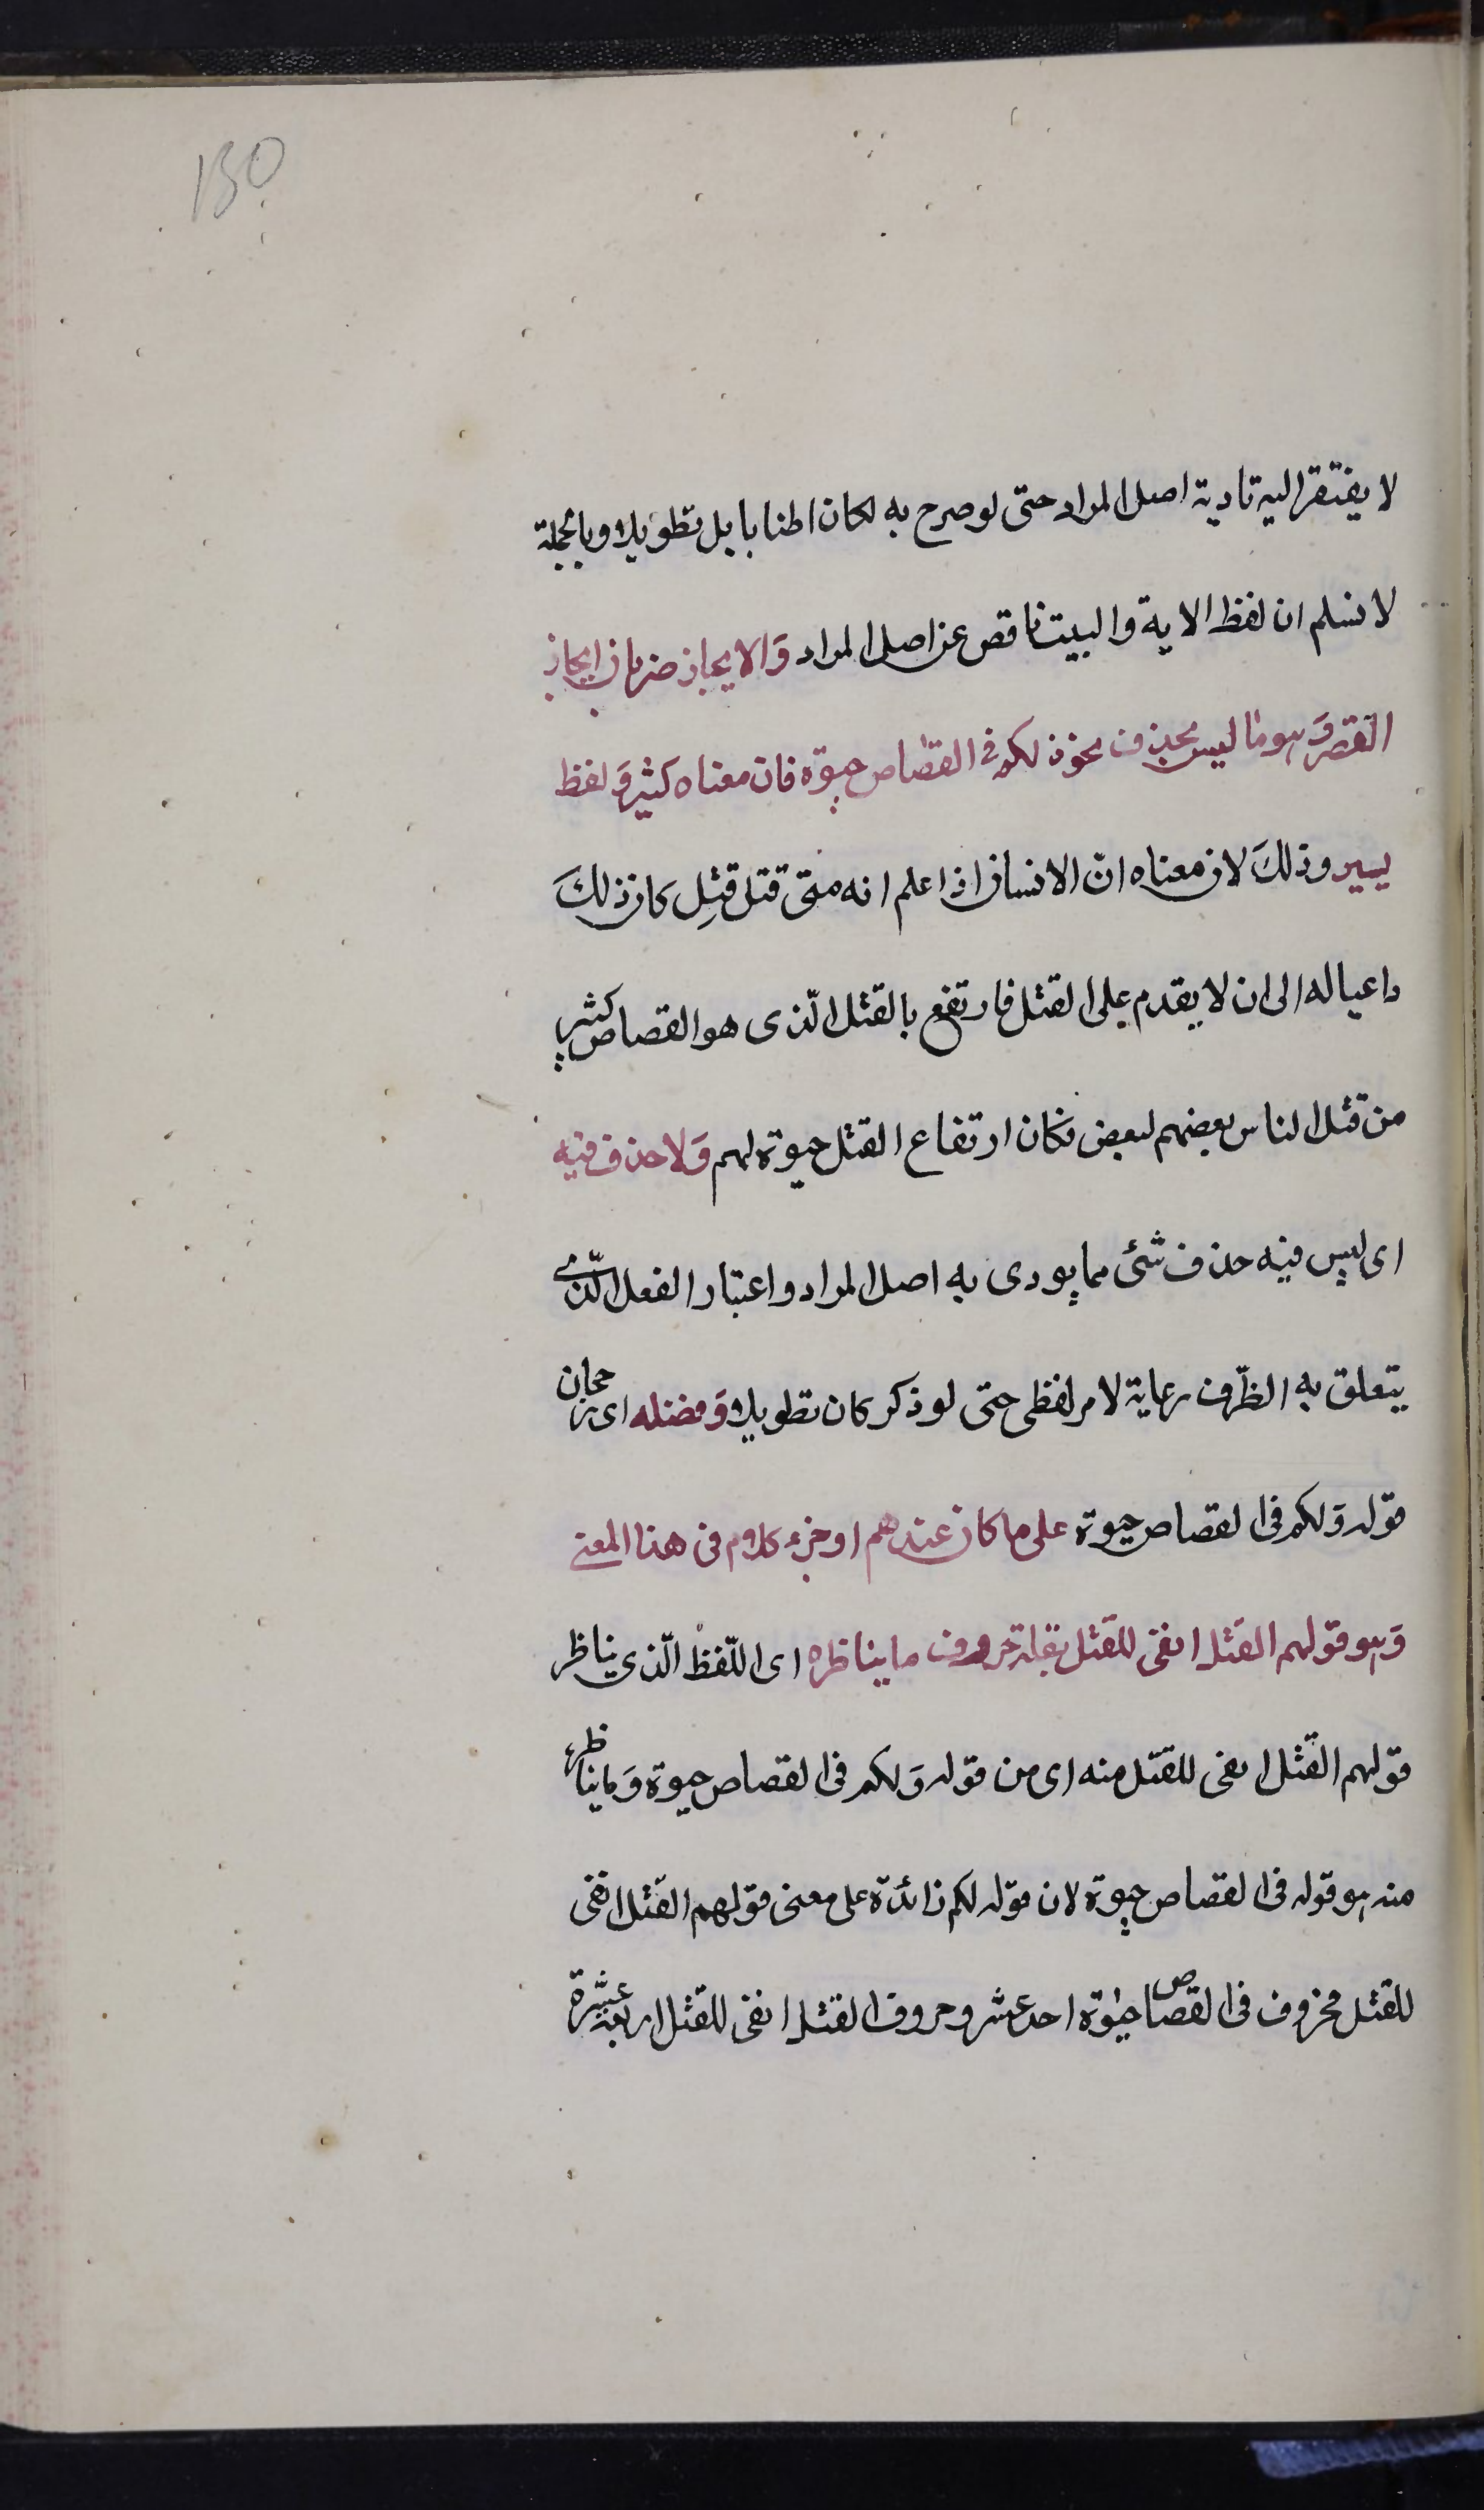 130
لا يفتقر اليه تادية اصل المراد حتى لو صرح به لكان اطنابا بل تطويلا وبالجملة
لا نسلم ان لفظ الاية والبيت ناقص عن اصل المراد وَالايجاز ضربان ايجاز
القصر وَهو ما ليس بحذف نحو ولكم فى القصاص حيوة فان معناه كثير وَلفظ
يسير وذلكَ لان معناه انّ الانسان اذا علم انه متى قتل قُتِل كان ذلكَ
داعيا له الى ان لا يقدم على القتل فارتفع بالقتل الّذى هو القصاص كثير
من قتل الناس بعضهم لبعض فكان ارتفاع القتل حيوة لهم وَلا حذف فيه
اى ليس فيه حذف شئ مما يودى به اصل المراد واعتبار الفعل الّذى
يتعلق به الظّرف رعاية لامر لفظى حتى لو ذكر كان تطويلا وَفضله اى رجحان
قوله وَلكم فى القصاص حيوة على ما كان عندهم اوجز كلام فى هذا المعنى
وَهو قولهم القتل انفى للقتل بقلة حروف ما يناظره اى اللّفظ الّذى يناظر
قولهم القتل انفى للقتل منه اى من قوله وَلكم فى القصاص حيوة وَما يناظره
منه هو قوله فى القصاص حيوة لان قوله لكم زائدة على معنى قولهم القتل انفى
للقتل فحروف فى القصاص حيوة احد عشر وحروف القتل انفى للقتل اربعة عشرة